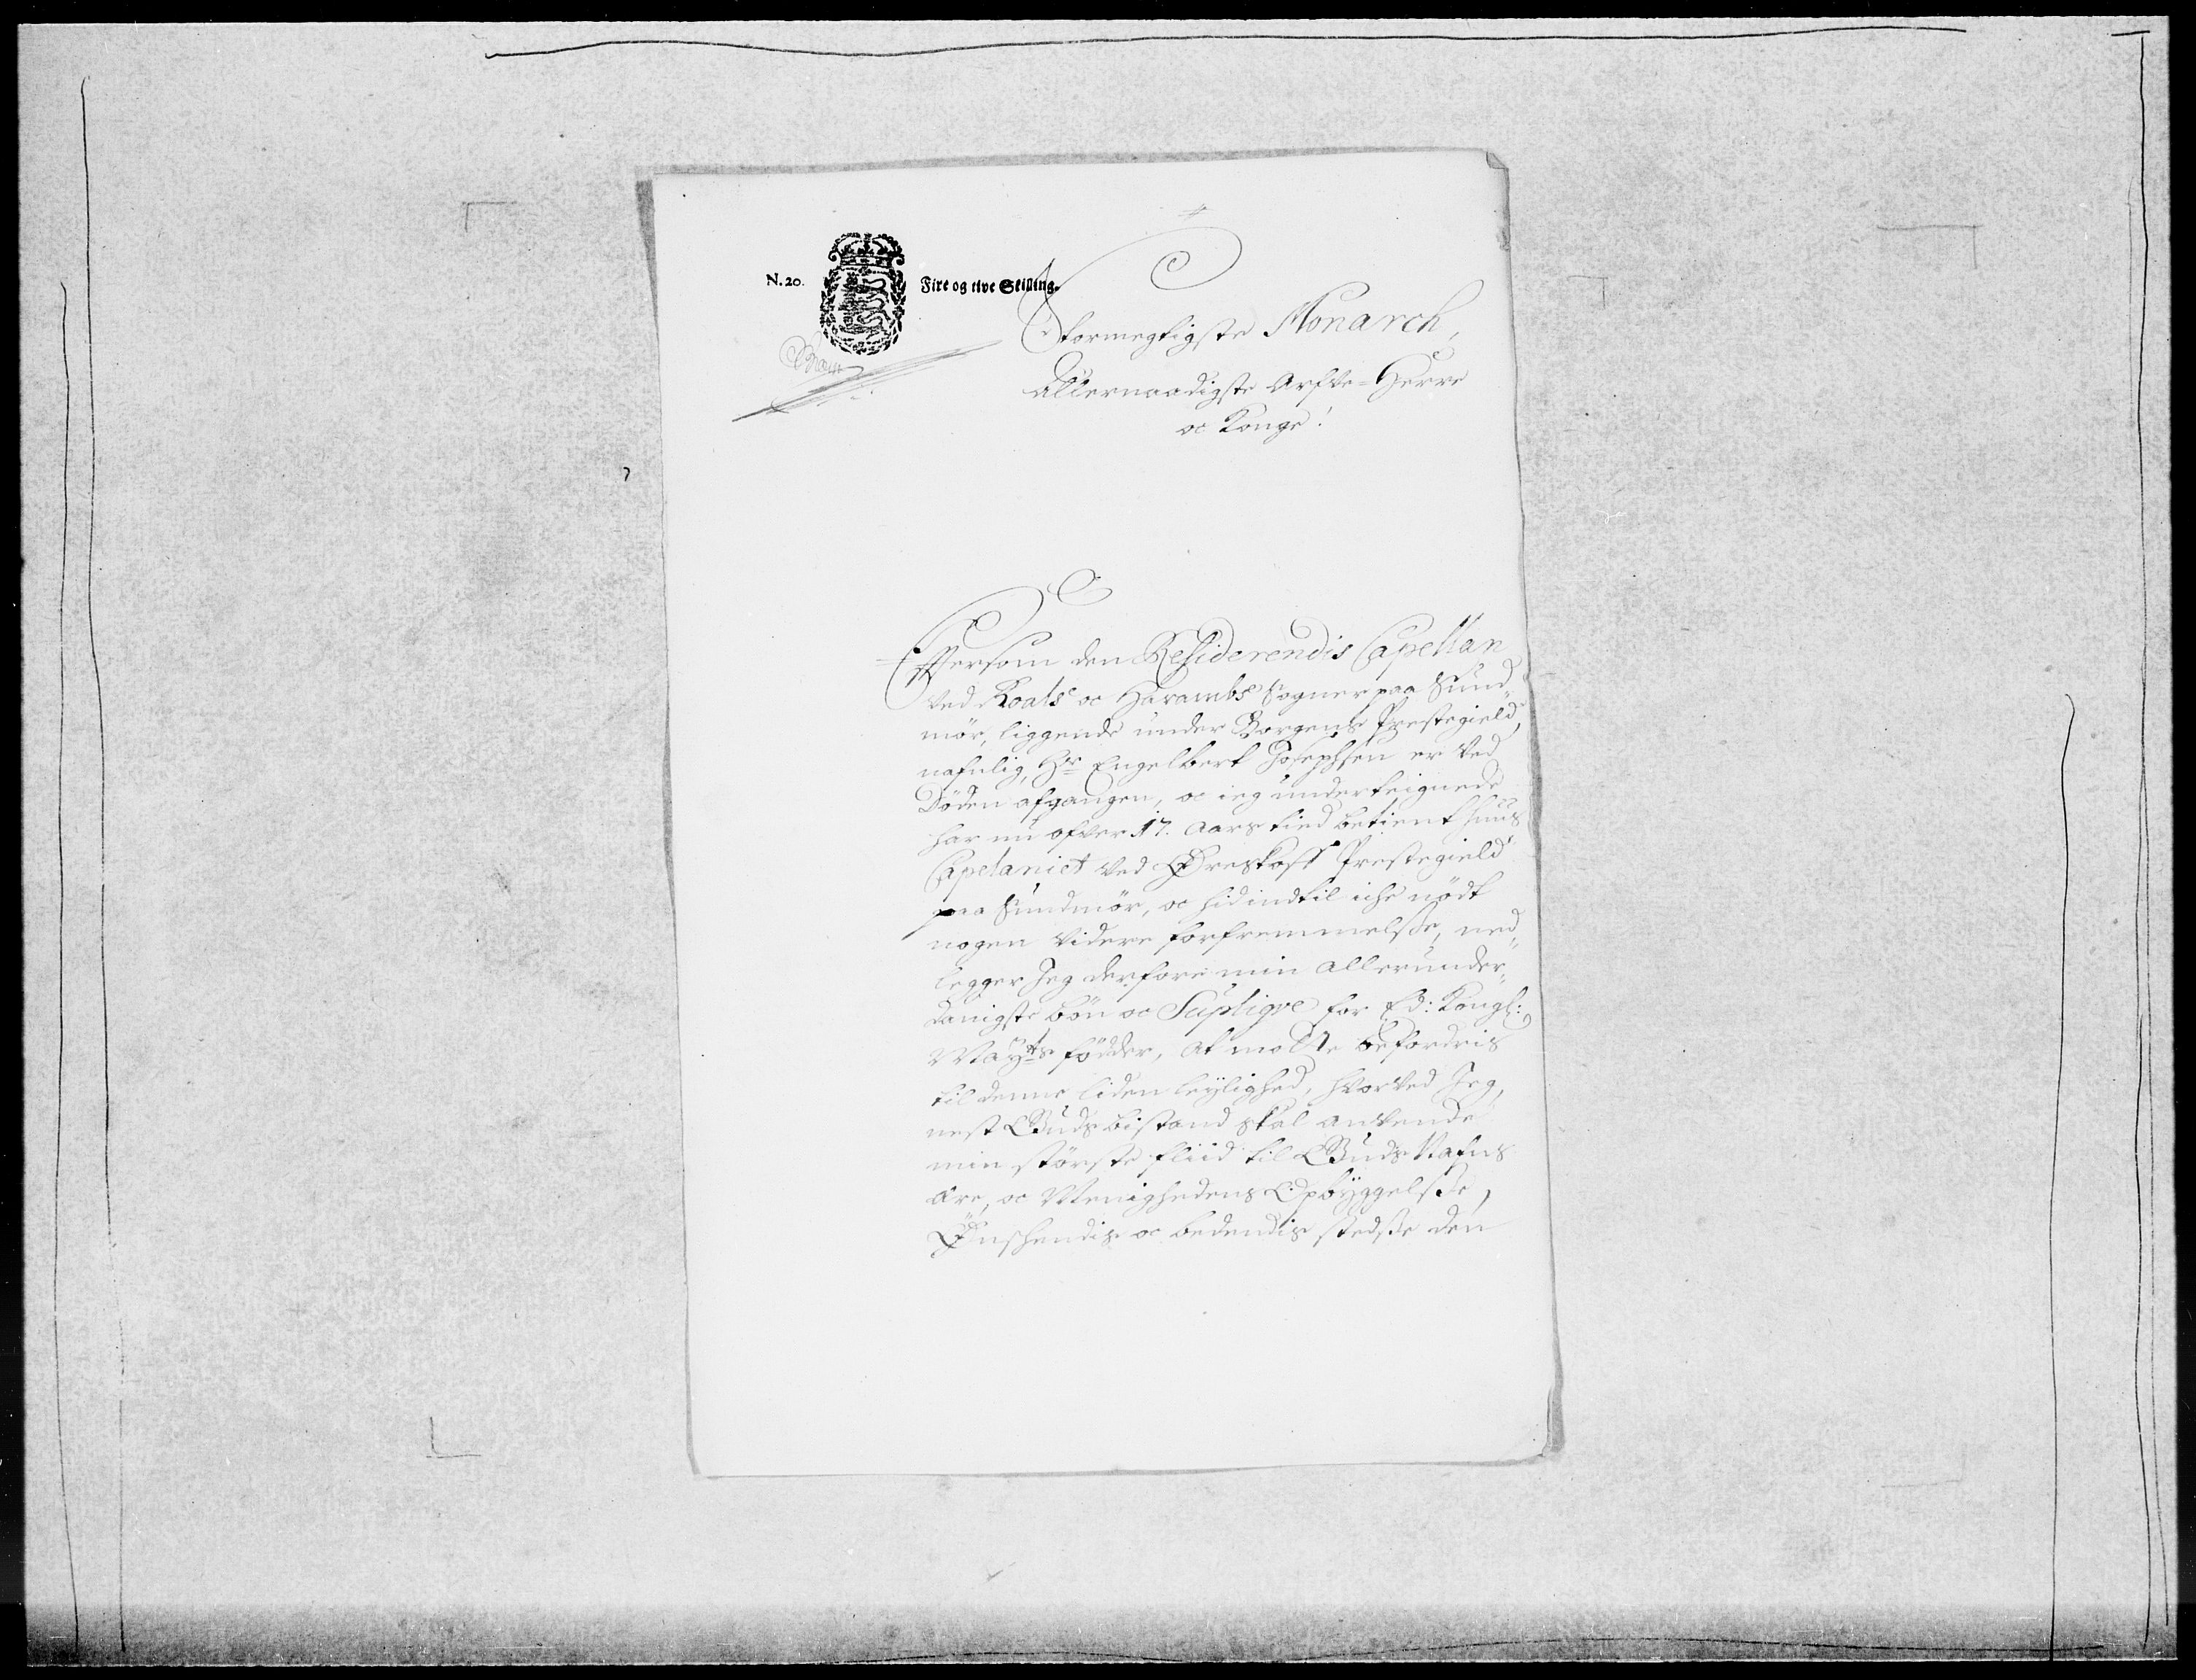 N. 20.
Fire og tive Skilling.
Stormegtigste Monarch,
Allernaadigste Arfve-Herre
oc Konge!
Efftersom den Residerendis Capellan
ved Roals oc Harambs Sogner paa Sund-
mør, liggende under Borgens Prestegield,
nafnlig, Hr Engelbert Josephsen er ved
Døden afgangen, oc ieg underteignede
har nu ofver 17. aars tied betient huus
Capelaniet ved Øreskoff Prestegield
paa Sundmør, oc hid indtil iche nødt
nogen videre forfremmelsse, ned-
legger Jeg derfore min allerunder-
danigste bøn oc Supliqve for Ed: Kongl:
Mayts fødder, at motte befordris
til denne liden leylighed, hvorved Jeg,
nest Guds bistand skal anvende
min største fliid til Guds Nafns
ære, oc Menighedens Opbyggelsse,
Ønschendis oc bedendis stedsse den